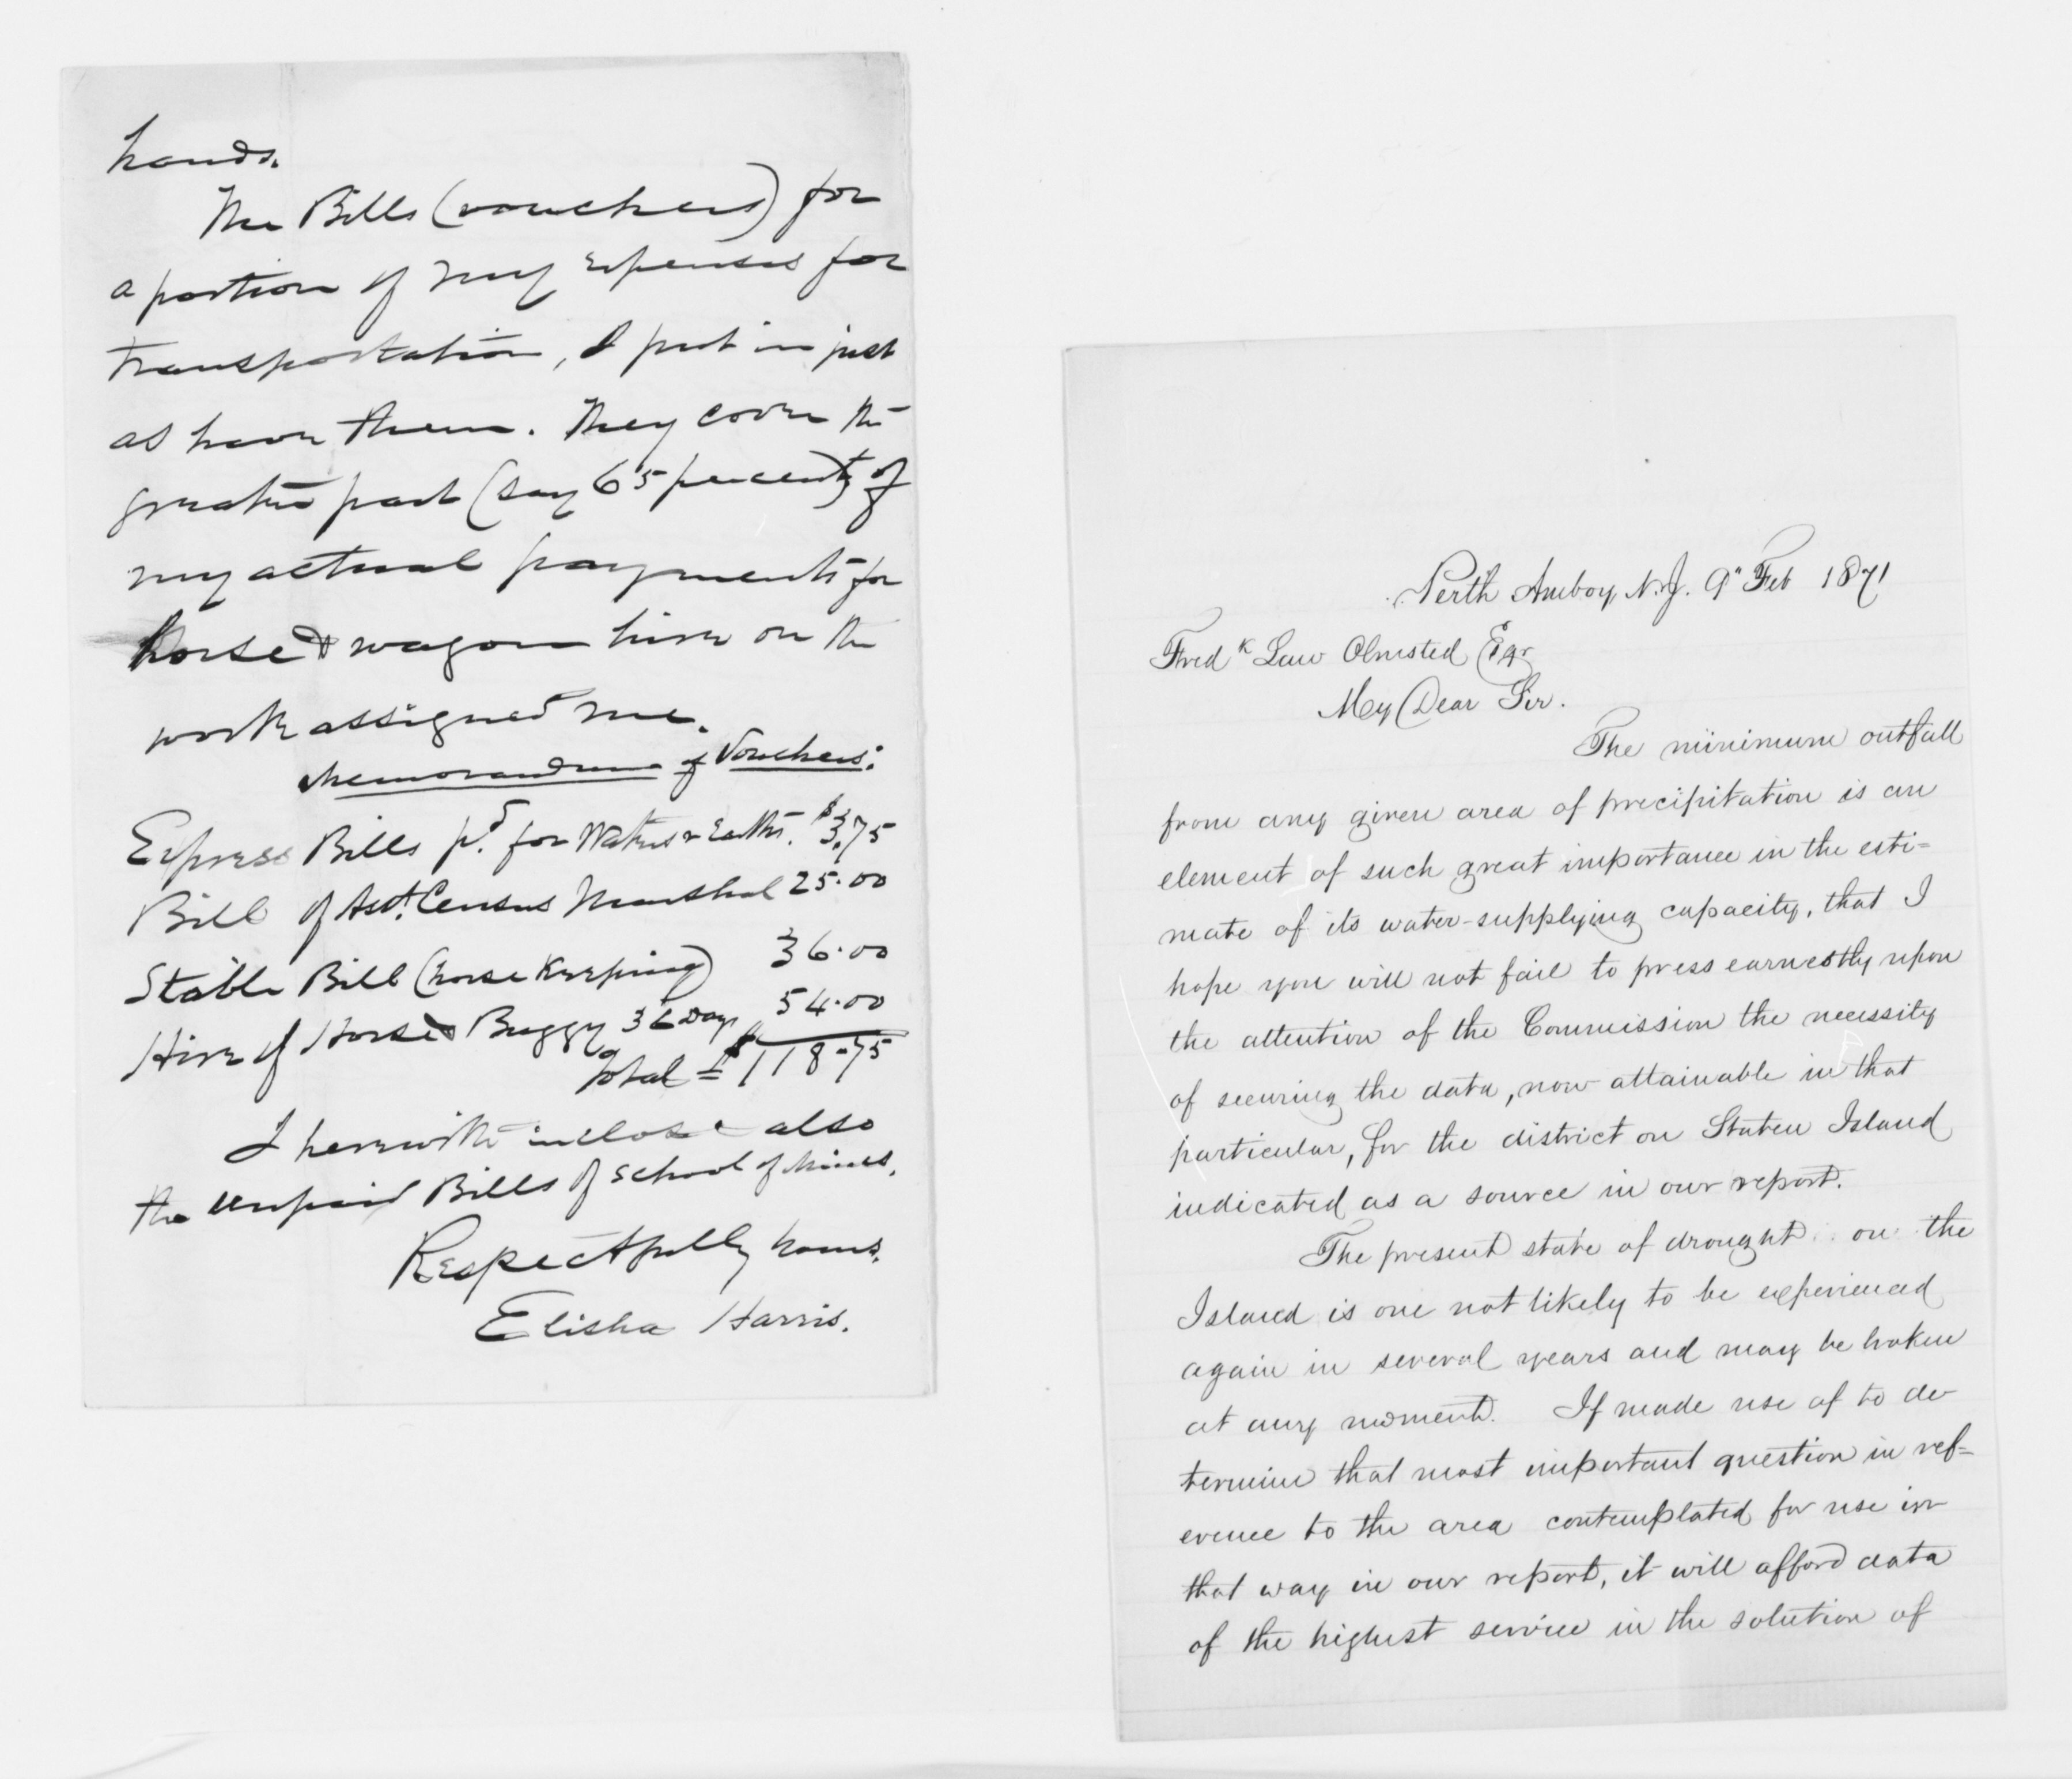 hands.
The Bills (vouchers) for
a portion of my expenses for
transportation, I put in just
as have them. They cover the
greater part (say 65 percent) of
my actual payments for
horse & wagon hire on the
work assigned me.
Memorandum of Vouchers:
Express Bills pd. for Waters & Earths. $3.75
Bill of Asst. Census Marshal 25.00
Stable Bill (horse keeping) 36.00
Hire of Horse & Buggy 36 Days 54.00
Total = $118.75
I herewith inclose also
the unpaid Bills of School of Mines.
Respectfully Yours.
Elisha Harris.
Perth Amboy N.J. 9" Feb 1871
Fredk Law Olmsted Esqr
My Dear Sir.
The minimum outfall
from any given area of precipitation is an
element of such great importance in the esti=
mate of its water-supplying capacity, that I
hope you will not fail to press earnestly upon
the attention of the Commission the necessity
of securing the data, now attainable in that
particular, for the district on Staten Island
indicated as a source in our report.
The present state of drought on the
Island is one not likely to be experienced
again in several years and may be broken
at any moment. If made use of to de-
termine that most important question in ref=
erence to the area contemplated for use in
that way in our report, it will afford data
of the highest service in the solution of